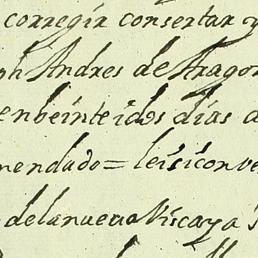 corregir consertar y
ph Andres de Aragon
enbeinteidos dias d
mendado = leisiconve
delanueva Viscaya